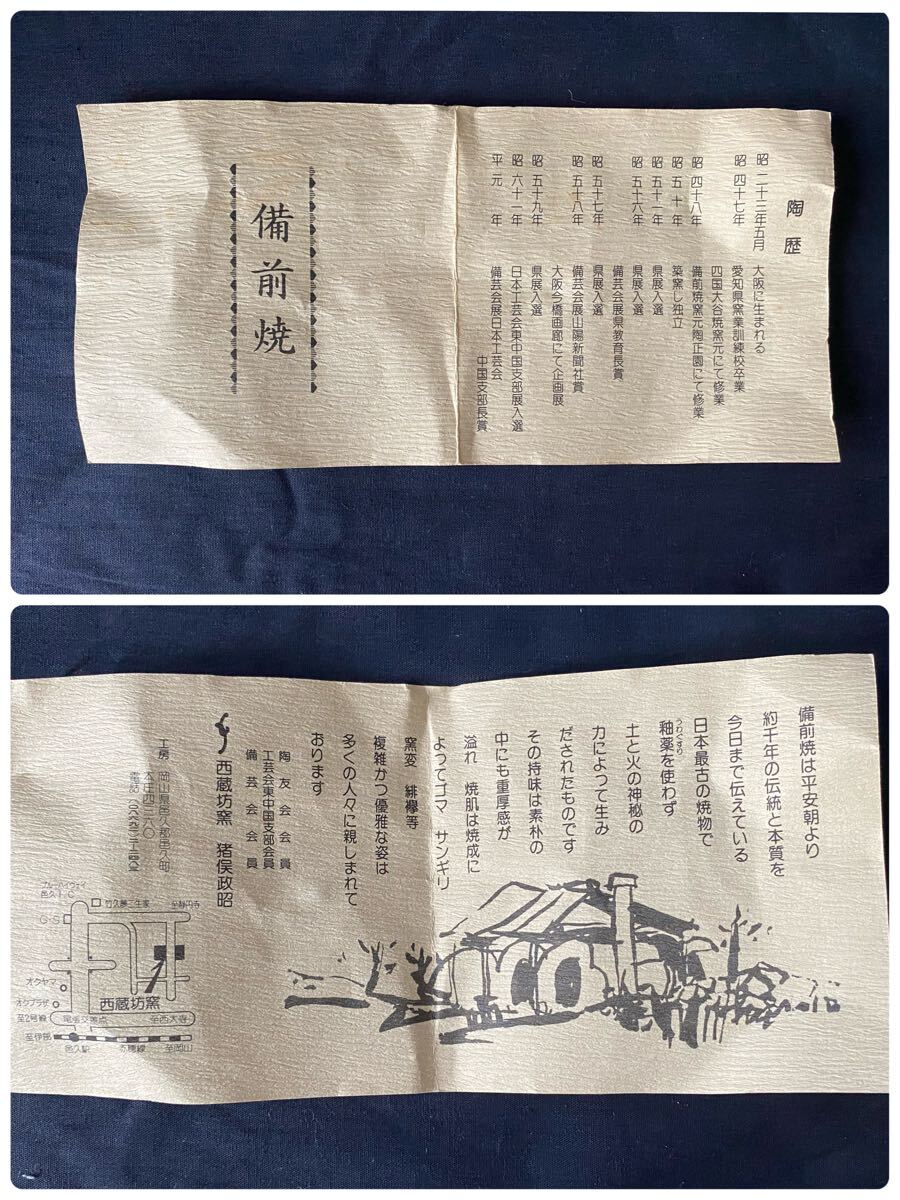 陶歴
昭二十三年五月 大阪に生まれる
昭四十七年 愛知県窯業訓練校卒業
四国大谷焼窯元にて修業
昭四十八年 備前焼窯元陶正園にて修業
昭五十年 築窯し独立
昭五十一年 県展入選
昭五十六年 県展入選
備芸会展県教育長賞
昭五十七年 県展入選
昭五十八年 備芸会展山陽新聞社賞
大阪今橋画廊にて企画展
昭五十九年 県展入選
昭六十一年 日本工芸会東中国支部展入選
平元年 備芸会展日本工芸会
中国支部長賞
備前焼
備前焼は平安朝より
約千年の伝統と本質を
今日まで伝えている
日本最古の焼物で
釉薬を使わず
うわぐすり
土と火の神秘の
力によって生み
だされたものです
その持味は素朴の
中にも重厚感が
溢れ 焼肌は焼成に
よってゴマ サンギリ
窯変 緋襷等
複雑かつ優雅な姿は
多くの人々に親しまれて
おります
陶友会会員
工芸会東中国支部会員
備芸会会員
西蔵坊窯 猪俣政昭
工房 岡山県邑久郡邑久町
本庄四二六〇
電話
ブルーハイウェイ
邑久I・C
竹久夢二生家
至静円寺
G・S
オクヤマ
オクプラザ
西蔵坊窯
至2号線
尾張交差点
至西大寺
至伊部
邑久駅
赤穂線
至岡山